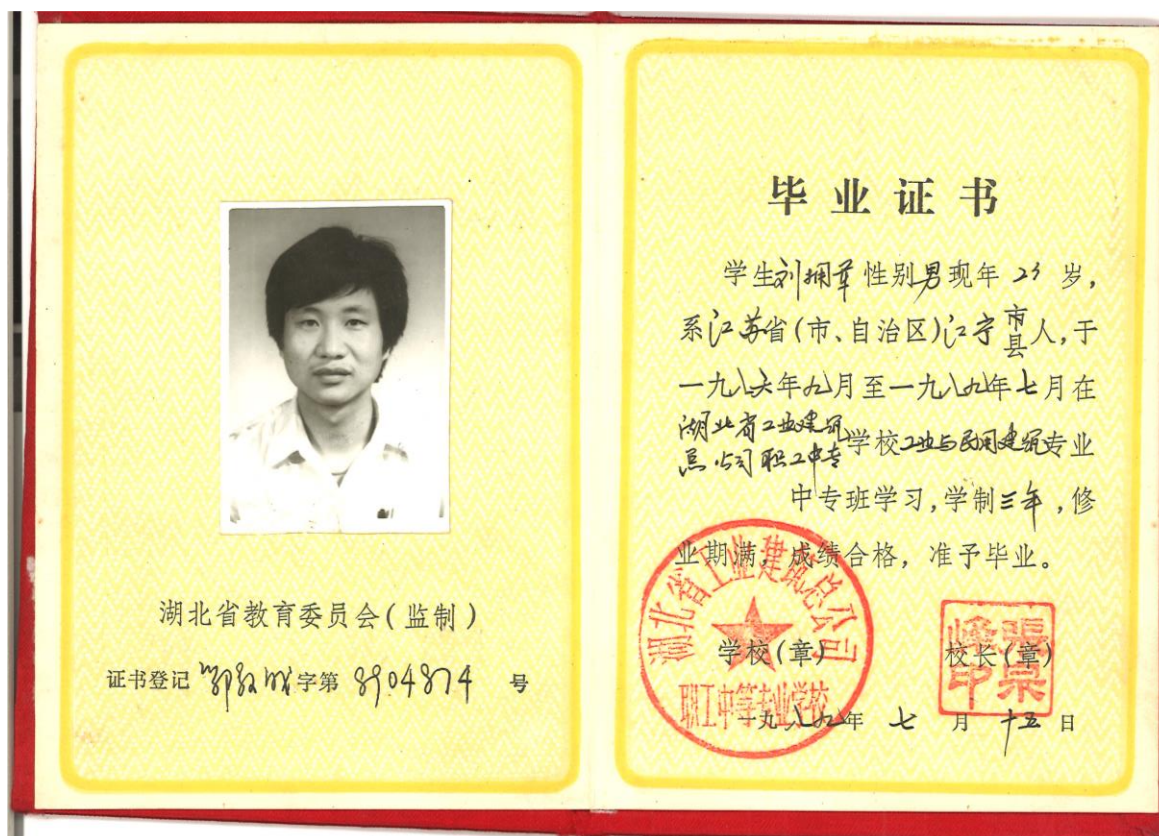 湖北省教育委员会(监制)
证书登记鄂教成字第8904874号
毕业证书
学生刘拥军性别男现年23岁,
系江苏省(市、自治区)江宁市县人,于
一九八六年九月至一九八九年七月在
湖北省工业建筑总公司职工中专学校工业与民用建筑专业
中专班学习,学制三年,修
业期满,成绩合格,准予毕业。
湖北省工业建筑总公司
职工中等专业学校
学校(章)
校长(章)
一九八九年七月十五日